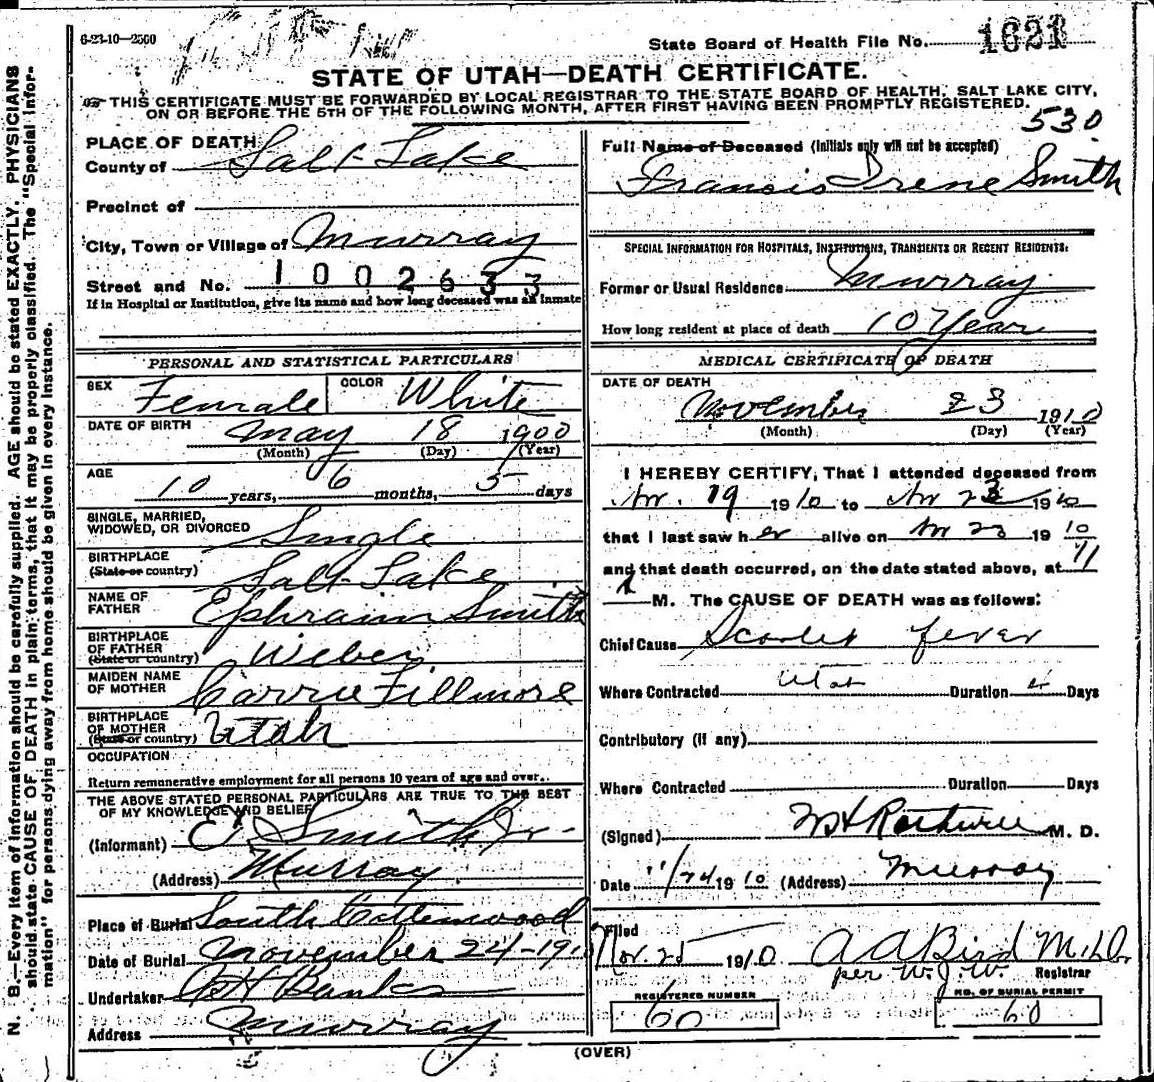 6-23-10—2500
State Board of Health File No. 1621
STATE OF UTAH—DEATH CERTIFICATE.
THIS CERTIFICATE MUST BE FORWARDED BY LOCAL REGISTRAR TO THE STATE BOARD OF HEALTH, SALT LAKE CITY,
ON OR BEFORE THE 5TH OF THE FOLLOWING MONTH, AFTER FIRST HAVING BEEN PROMPTLY REGISTERED.
530
PLACE OF DEATH
County of Salt Lake
Precinct of
City, Town or Village of Murray
Street and No. 1002633
If in Hospital or Institution, give its name and how long deceased was an inmate
Full Name of Deceased (Initials only will not be accepted)
Francis Irene Smith
SPECIAL INFORMATION FOR HOSPITALS, INSTITUTIONS, TRANSIENTS OR RECENT RESIDENTS:
Former or Usual Residence Murray
How long resident at place of death 10 Year
PERSONAL AND STATISTICAL PARTICULARS
SEX Female COLOR White
DATE OF BIRTH May 18 1900
(Month) (Day) (Year)
AGE
10 years, 6 months, 5 days
SINGLE, MARRIED,
WIDOWED, OR DIVORCED Single
BIRTHPLACE
(State or country) Salt Lake
NAME OF
FATHER Ephraim Smith
BIRTHPLACE
OF FATHER
(State or country) Weber
MAIDEN NAME
OF MOTHER Carrie Fillmore
BIRTHPLACE
OF MOTHER
(State or country) Utah
OCCUPATION
Return remunerative employment for all persons 10 years of age and over.
THE ABOVE STATED PERSONAL PARTICULARS ARE TRUE TO THE BEST
OF MY KNOWLEDGE AND BELIEF
(Informant) E Smith Jr
(Address) Murray
Place of Burial South Cottenwood
Date of Burial November 24-191
Undertaker Banks
Address Murray
MEDICAL CERTIFICATE OF DEATH
DATE OF DEATH
November 23 1910
(Month) (Day) (Year)
I HEREBY CERTIFY, That I attended deceased from
Nov. 19 1910 to Nov 23 1910
that I last saw her alive on Nov 23 1910
and that death occurred, on the date stated above, at 11
A M. The CAUSE OF DEATH was as follows:
Chief Cause Scarlet fever
Where Contracted Utah Duration 4 Days
Contributory (if any)
Where Contracted Duration Days
(Signed) M. D.
Date 11/24 1910 (Address) Murray
Filed
Nov. 25 1910 A A Bird M.D.
per W. J. W. Registrar
REGISTERED NUMBER
60
NO. OF BURIAL PERMIT
60
(OVER)
N. B.—Every item of information should be carefully supplied. AGE should be stated EXACTLY. PHYSICIANS
should state CAUSE OF DEATH in plain terms, that it may be properly classified. The "Special Infor-
mation" for persons dying away from home should be given in every instance.